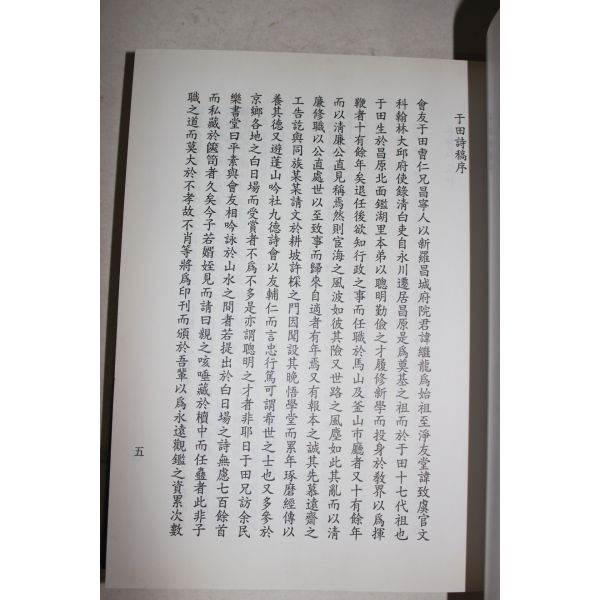 于田詩稿序
會友于田曺仁兄昌寧人以新羅昌城府院君諱繼龍爲始祖至淨友堂諱致虞官文
科翰林大邱府使錄清白吏自永川遷居昌原是爲奠基之祖而於于田十七代祖也
于田生於昌原北面鑑湖里本弟以聰明勤儉之才履修新學而投身於敎界以爲揮
鞭者十有餘年矣退任後欲知行政之事而任職於馬山及釜山市廳者又十有餘年
而以清廉公直見稱焉然則宦海之風波如彼其險又世路之風塵如此其亂而以清
廉修職以公直處世以至致事而歸來自適者有年焉又有報本之誠其先慕遠齋之
工告訖與同族某某請文於耕坡許棌之門因聞設其晚悟學堂而累年琢磨經傳以
養其德又遊蓬山吟社九德詩會以友輔仁而言忠行篤可謂希世之士也又多參於
京鄉各地之白日場而受賞者不爲不多是亦謂聰明之才者非耶日于田兄訪余民
樂書堂曰平素與會友相吟詠於山水之間者若提出於白日場之詩無慮七百餘首
而私藏於篋笥者久矣今子若婿姪見而請曰親之咳唾藏於櫝中而任蠹者此非子
職之道而莫大於不孝故不肖等將爲印刊而頒於吾輩以爲永遠觀鑑之資累次數
五